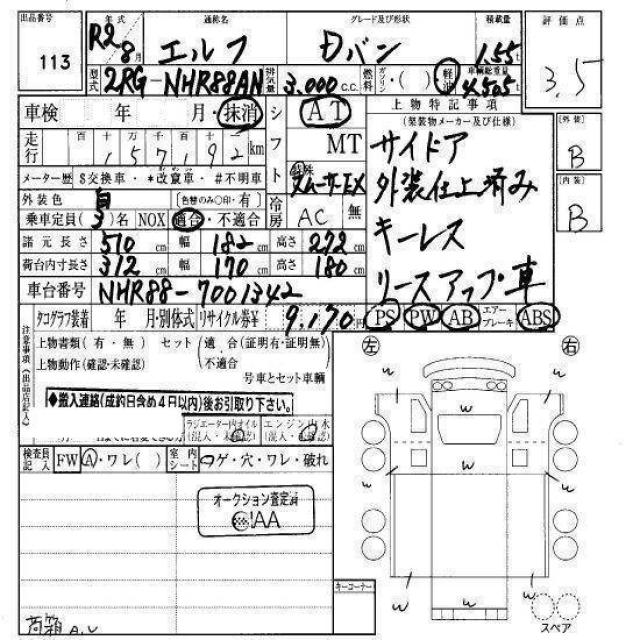 出品番号 113
年式 R2 8月
通称名 エルフ
グレード及び形状 Dバン
積載量 1.55t
評価点 3.5
型式 2RG-NHR88AN
排気量 3.000 C.C.
燃料 ガソリン・( ) 軽油
車輌総重量 4505t
車検 年 月・抹消
シフト AT
MT
特殊 スムーサーEX
上物特記事項
(架装物メーカー及び仕様)
サイドア
外装仕上済み
キーレス
リースアップ車
[外装] B
[内装] B
走行 百 十 万 千 百 十 一
157,192km
メーター歴 $交換車・*改竄車・#不明車
外装色 白 〔色替のみ○印・有〕
乗車定員(3)名 NOX 適合・不適合
冷房 AC 無
諸元長さ 510cm 幅 182cm 高さ 272cm
荷台内寸長さ 312cm 幅 170cm 高さ 180cm
車台番号 NHR88-7001342
タコグラフ装着 年 月・別体式 リサイクル券¥ 9,170円
PS PW AB エアーブレーキ ABS
注意事項(出品店記入)
上物書類(有・無) セット(適 合(証明有・証明無)
上物動作(確認・未確認) (不適合
号車とセット車輌
◆搬入連絡(成約日含め4日以内)後お引取り下さい。
ラジエーター内オイル(混入・未確認) エンジン内水(混入・未確認)
検査員記入 FW A・ワレ( ) 室内シート コゲ・穴・ワレ・破れ
オークション査定済
AA
左 右
w w
w
w w
w w
w w
w w w
キーコーナー
スペア
荷箱 A.U